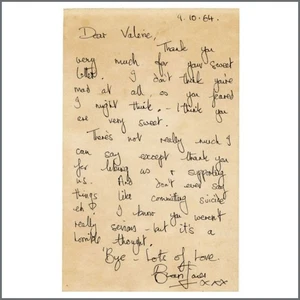 9.10.64.
Dear Valerie,
Thank you
very much for your sweet
letter. I don't think you're
mad at all as you feared
I might think. - I think you
are very sweet.
There's not really much I
can say except thank you
for liking us & supporting
us. And don't ever say
things like commiting suicide
eh? I know you weren't
really serious - but it's a
horrible thought.
'Bye - Lots of Love
Brian Jones
xxx